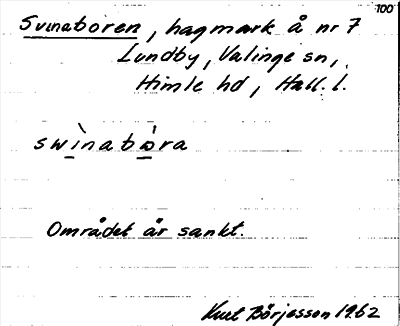 100
Svinaboren, hagmark å nr 7
Lundby, Valinge sn,
Himle hd, Hall. l.
swìnabòra
Området är sankt.
Kurt Börjesson 1962